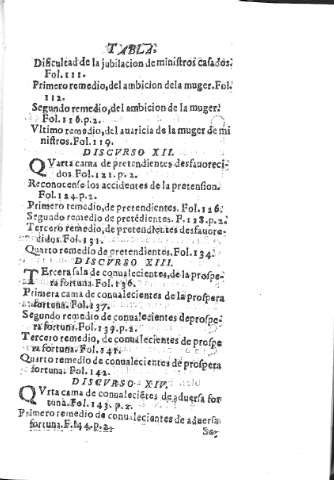 TABLA.
Dificultad de la jubilacion de ministros casados.
Fol.111.
Primero remedio, del ambicion dela muger. Fol.
112.
Segundo remedio, del ambicion de la muger.
Fol.116.p.2.
Vltimo remedio, del auaricia de la muger de mi
nistros. Fol.119.
DISCVRSO XII.
QVarta cama de pretendientes desfauoreci-
dos. Fol.121.p.2.
Reconocense los accidentes de la pretension.
Fol.124.p.2.
Primero remedio, de pretendientes. Fol.126.
Segundo remedio de pretēdientes. F.128.p.2.
Tercero remedio, de pretendientes desfauore-
didos. Fol.131.
Quarto remedio de pretendientes. Fol.134.
DISCVRSO XIII.
TErcera sala de conualecientes, de la prospe
ra fortuna. Fol.136.
Primera cama de conualecientes de la prospera
fortuna. Fol.137.
Segundo remedio de conualecientes de prospe-
ra fortuna. Fol.139.p.2.
Tercero remedio, de conualecientes de prospe
ra fortuna. Fol.141.
Quarto remedio de conualecientes de prospera
fortuna. Fol.142.
DISCVRSO XIV.
QVrta cama de conualeciētes de aduersa for
tuna. Fol.143.p.2.
Primero remedio de conualecientes de aduersa
fortuna. F.144.p.2.